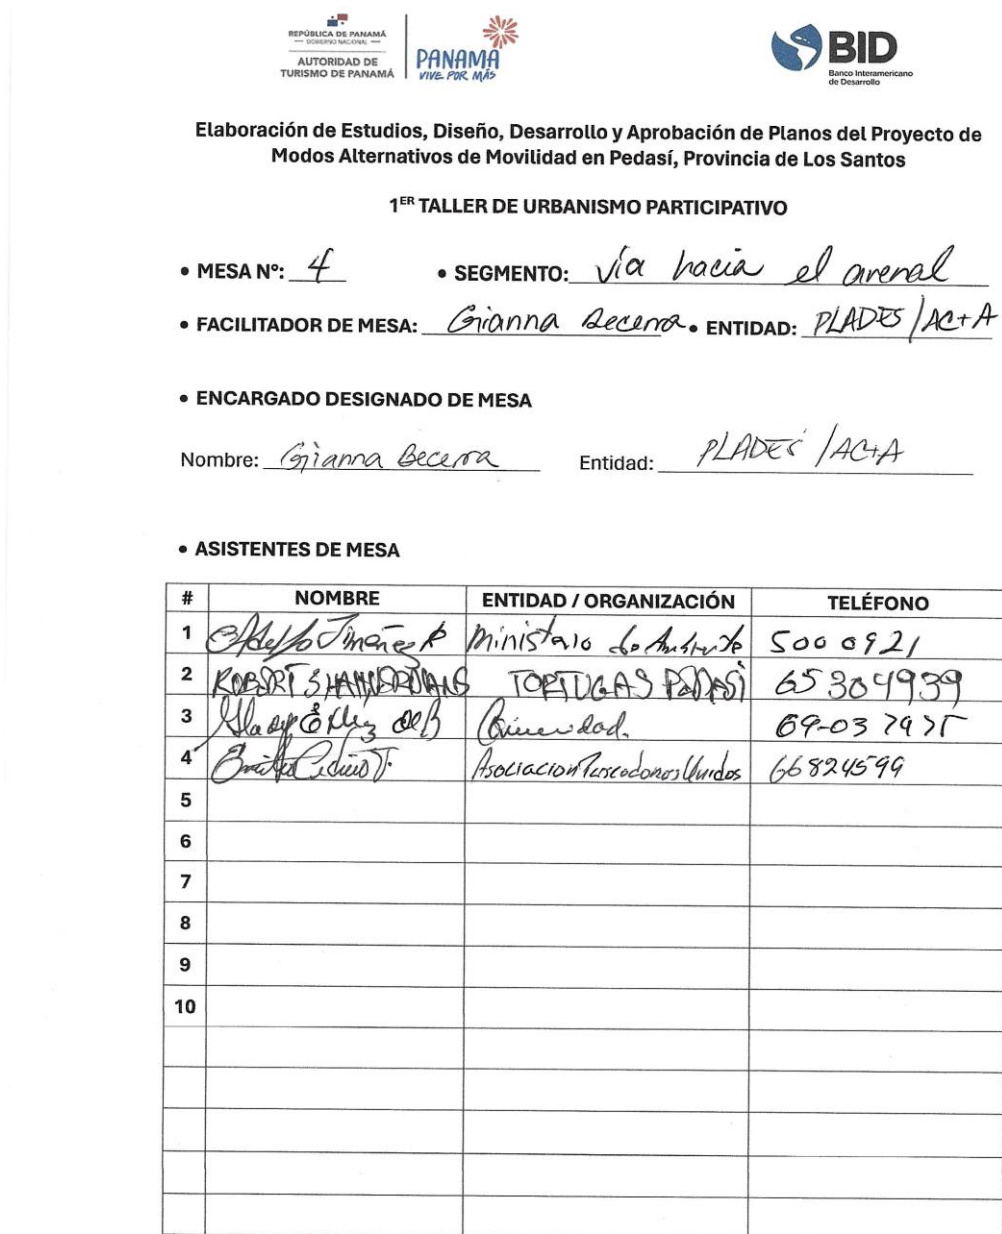 REPÚBLICA DE PANAMÁ
— GOBIERNO NACIONAL —
AUTORIDAD DE
TURISMO DE PANAMÁ
PANAMÁ
VIVE POR MÁS
BID
Banco Interamericano
de Desarrollo
Elaboración de Estudios, Diseño, Desarrollo y Aprobación de Planos del Proyecto de
Modos Alternativos de Movilidad en Pedasí, Provincia de Los Santos
1ER TALLER DE URBANISMO PARTICIPATIVO
• MESA Nº: 4 • SEGMENTO: Vía hacia el arenal
• FACILITADOR DE MESA: Gianna Becerra • ENTIDAD: PLADES / AC+A
• ENCARGADO DESIGNADO DE MESA
Nombre: Gianna Becerra Entidad: PLADES / AC+A
• ASISTENTES DE MESA
# NOMBRE ENTIDAD / ORGANIZACIÓN TELÉFONO
1 Jiménez R Ministerio de Ambiente 500 0921
2 ROBERT TORTUGAS PEDASÍ 65304939
3 Comunidad.
4 Cedeño J. Asociacion Unidos 66824599
5
6
7
8
9
10